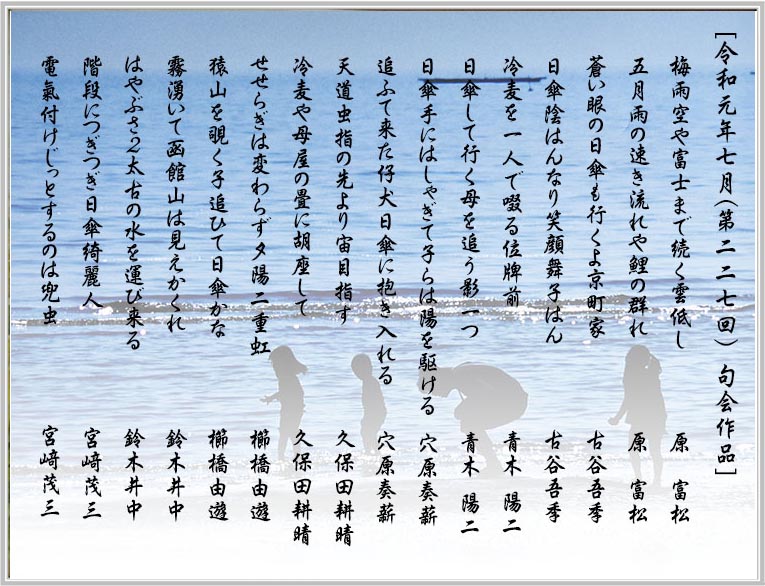 [令和元年七月(第二二七回) 句会作品]
梅雨空や富士まで続く雲低し 原 富松
五月雨の速き流れや鯉の群れ 原 富松
蒼い眼の日傘も行くよ京町家 古谷吾季
日傘陰はんなり笑顔舞子はん 古谷吾季
冷麦を一人で啜る位牌前 青木 陽二
日傘して行く母を追う影一つ 青木 陽二
日傘手にはしゃぎて子らは陽を駆ける 穴原奏薪
追ふて来た仔犬日傘に抱き入れる 穴原奏薪
天道虫指の先より宙目指す 久保田耕晴
冷麦や母屋の畳に胡座して 久保田耕晴
せせらぎは変わらず夕陽二重虹 櫛橋由遊
猿山を覗く子追ひて日傘かな 櫛橋由遊
霧湧いて函館山は見えかくれ 鈴木井中
はやぶさ2太古の水を運び来る 鈴木井中
階段につぎつぎ日傘綺麗人 宮﨑茂三
電氣付けじっとするのは兜虫 宮﨑茂三